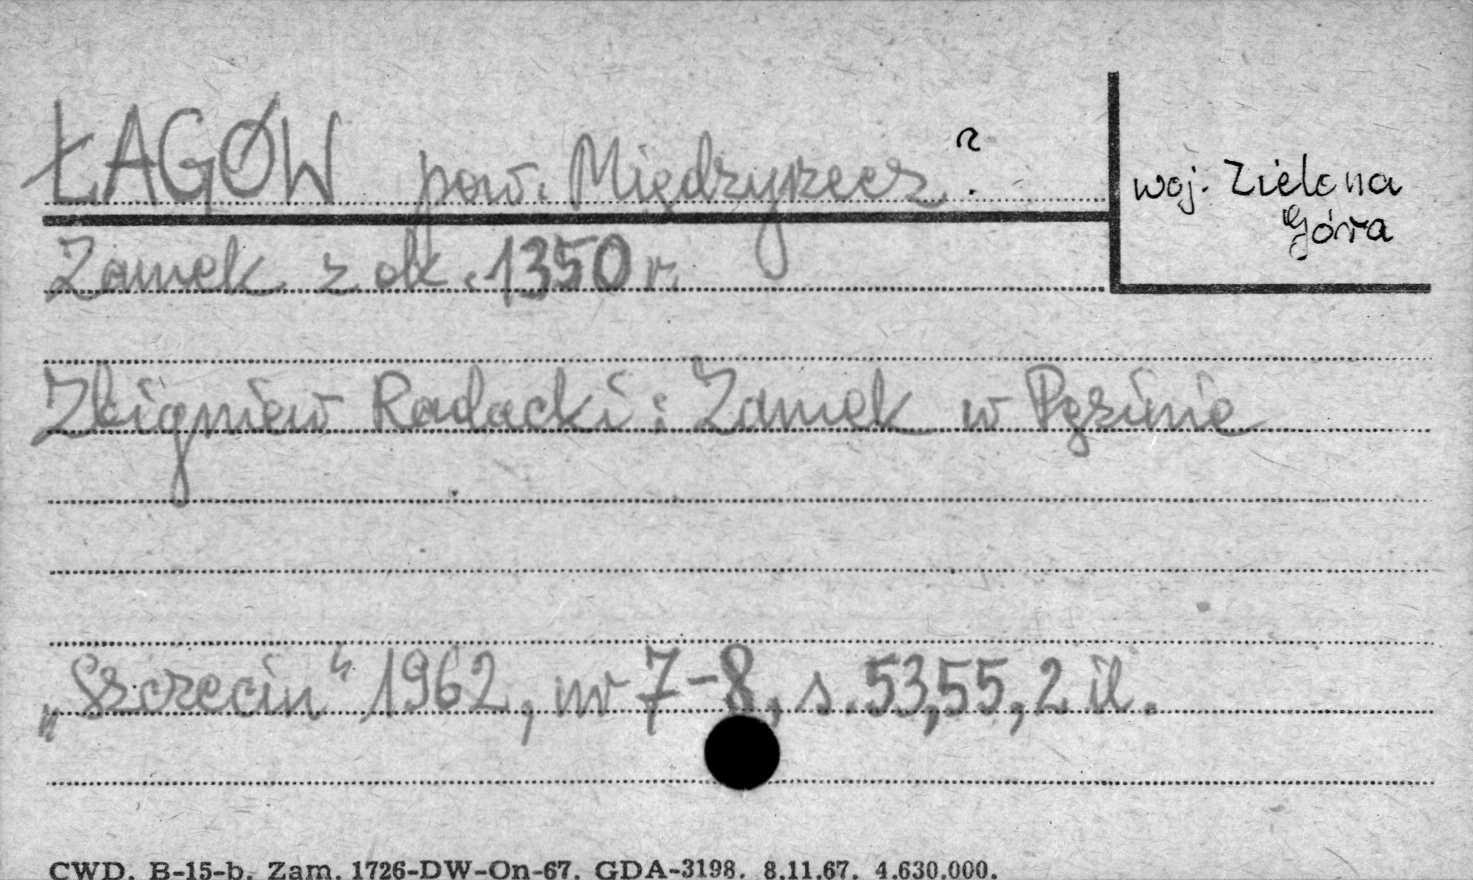 ŁAGÓW pow. Międzyrzecz ?
woj. Zielona
Góra
Zamek z ok. 1350 r.
Zbigniew Radacki: Zamek w Pęzinie
„Szczecin" 1962, nr 7-8, s. 53,55, 2 il.
CWD. B-15-b. Zam. 1726-DW-On-67. GDA-3198. 8.11.67. 4.630.000.